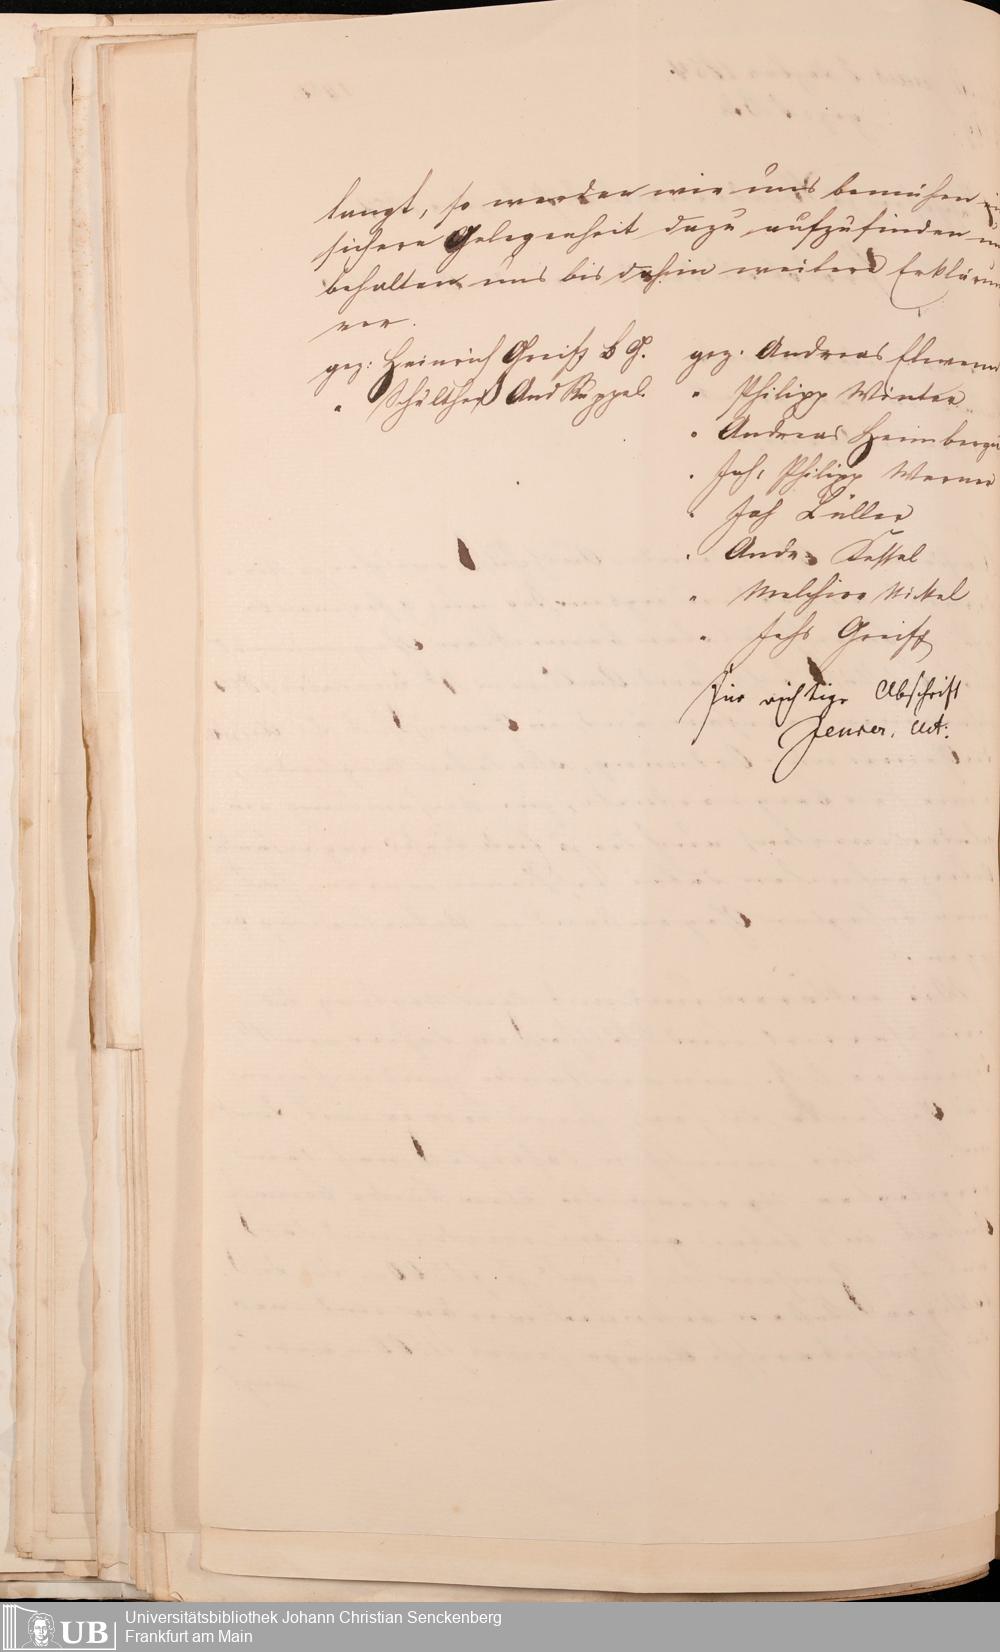 langt, so werden wir uns bemühen ein
sichere Gelegenheit dazu aufzufinden un
behalten uns bis dahin weitere Erklärun
vor.
gez: Heinrich Greiß B G.
" Schultheß And Ruppel.
gez. Andreas
" Philipp Winter
" Andreas Heimberge
" Joh: Philipp Werner
" Joh Müller
" Andr. Kessel
" Melchior Nickel
" Johs Greiß
Für richtige Abschrift
Act:
UB
Universitätsbibliothek Johann Christian Senckenberg
Frankfurt am Main